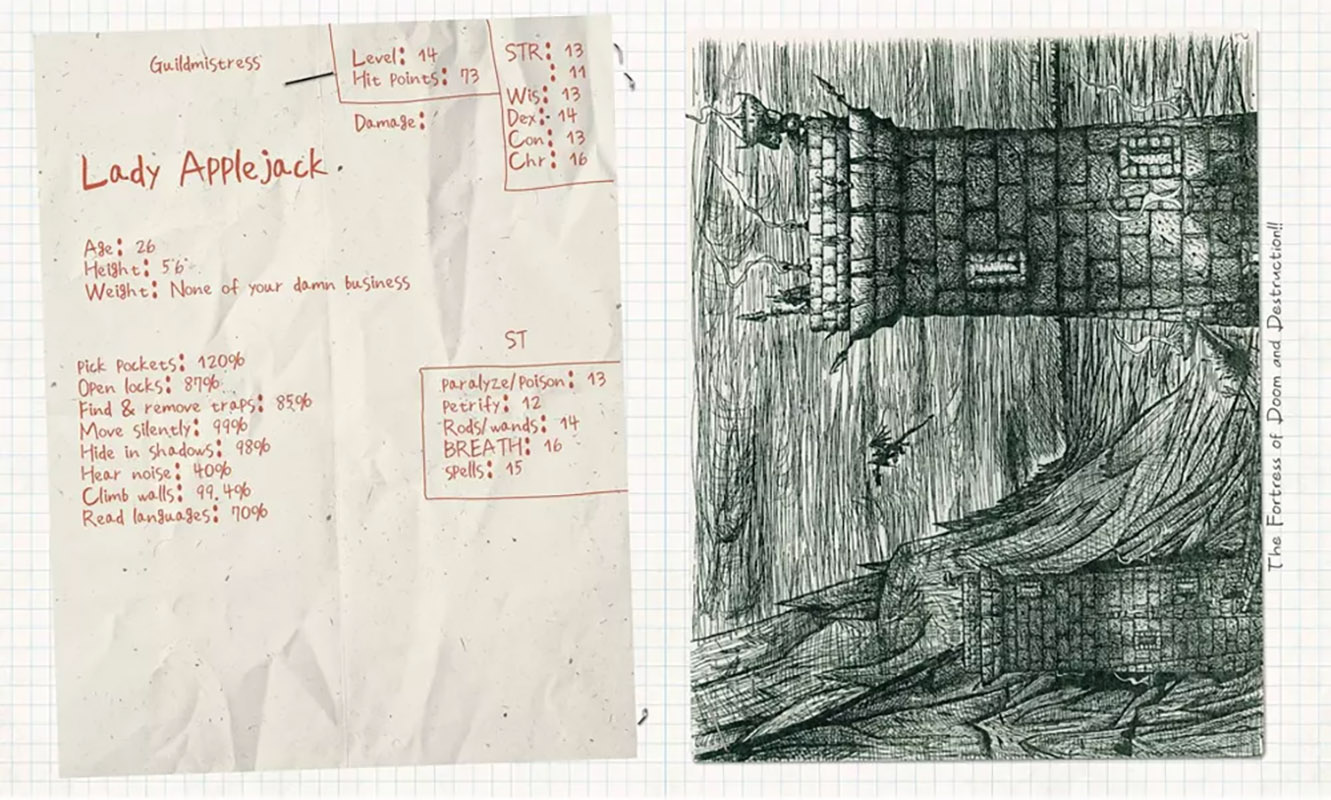 Guildmistress
Level: 14
Hit Points: 73
Damage:
STR: 13
: 11
Wis: 13
Dex: 14
Con: 13
Chr: 16
Lady Applejack.
Age: 26
Height: 5'6"
Weight: None of your damn business
Pick Pockets: 120%
Open locks: 87%
Find & remove traps: 85%
Move silently: 99%
Hide in shadows: 98%
Hear noise: 40%
Climb walls: 99.4%
Read languages: 70%
ST
Paralyze/Poison: 13
Petrify: 12
Rods/wands: 14
BREATH: 16
spells: 15
The Fortress of Doom and Destruction!!